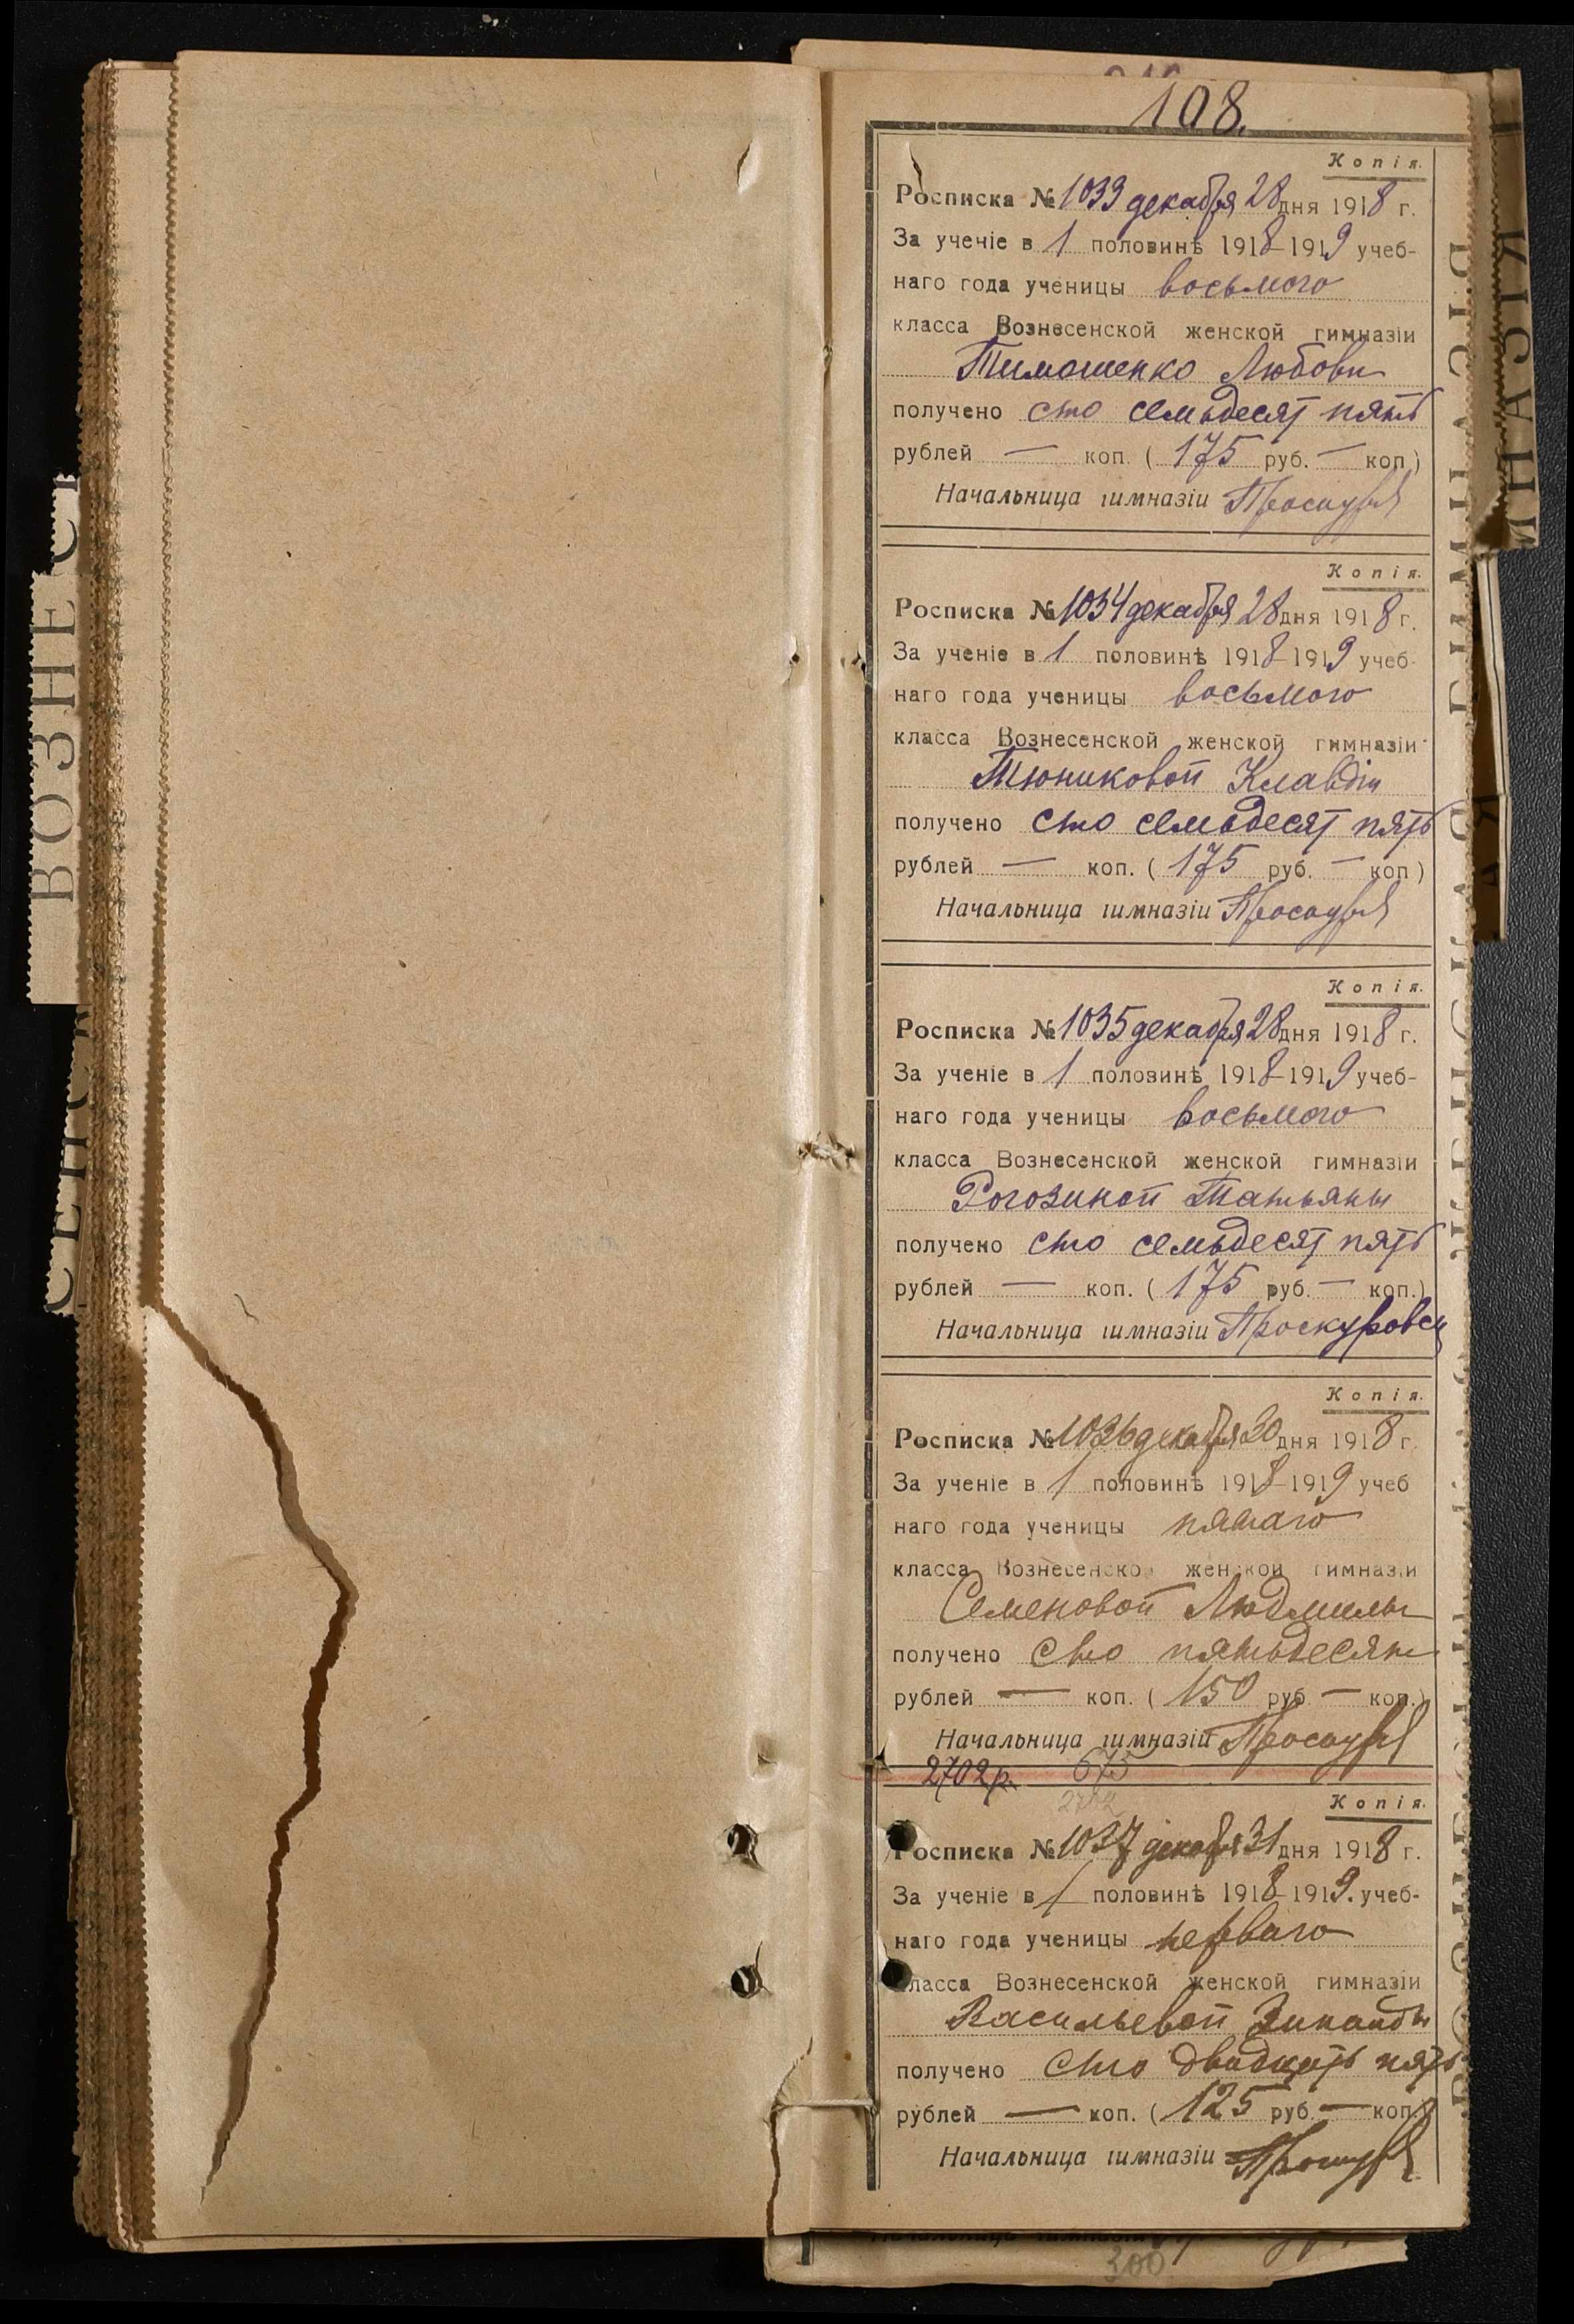 108.
Копія.
Росписка № 1033 декабря 28 дня 1918 г.
За ученіе в 1 половинѣ 1918-1919 учеб-
наго года ученицы восьмого
класса Вознесенской женской гимназіи
Тимошенко Любови
получено сто семьдесят пять
рублей — коп. ( 175 руб. — коп.)
Начальница гимназіи
Копія.
Росписка № 1034 декабря 28 дня 1918 г.
За ученіе в 1 половинѣ 1918-1919 учеб-
наго года ученицы восьмого
класса Вознесенской женской гимназіи
Тюниковой Клавдіи
получено сто семьдесят пять
рублей — коп. ( 175 руб. — коп)
Начальница гимназіи
Копія.
Росписка № 1035 декабря 28 дня 1918 г.
За ученіе в 1 половинѣ 1918-1919 учеб-
наго года ученицы восьмого
класса Вознесенской женской гимназіи
Рогозиной Татьяны
получено сто семьдесят пять
рублей — коп. ( 175 руб. — коп.)
Начальница гимназіи Проскуровск
Копія.
Росписка № 1036 декабря 30 дня 1918 г.
За ученіе в 1 половинѣ 1918-1919 учеб
наго года ученицы пятаго
класса Вознесенской женской гимназіи
Семеновой Людмилы
получено сто пятьдесят
рублей — коп. ( 150 руб — коп.)
Начальница гимназіи
2702 р. 675
2702
Копія.
Росписка № 1037 декабря 31 дня 1918 г.
За ученіе в 1 половинѣ 1918-1919. учеб-
наго года ученицы перваго
класса Вознесенской женской гимназіи
Васильевой Зинаиды
получено сто двадцать пять
рублей — коп. ( 125 руб — коп.)
Начальница гимназіи
300
ВОЗНЕС